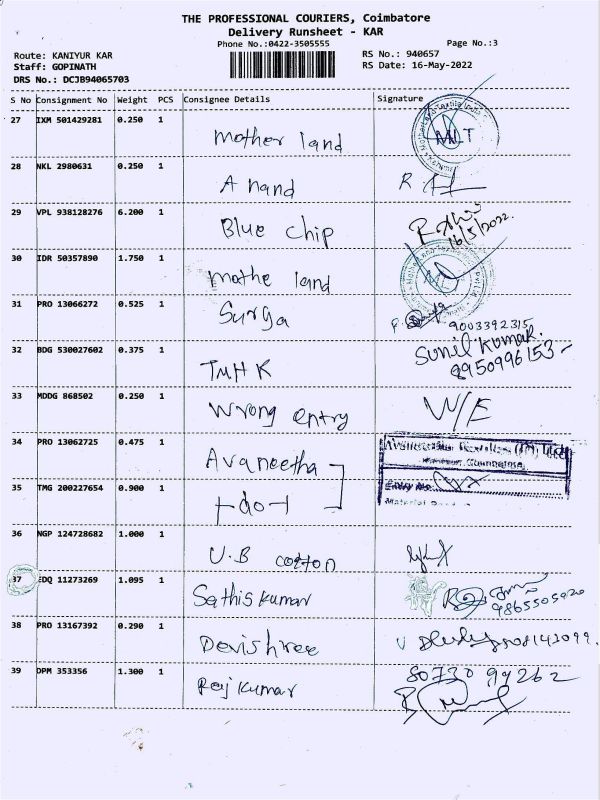 THE PROFESSIONAL COURIERS, Coimbatore
Delivery Runsheet - KAR
Phone No.:0422-3505555
Page No.:3
Route: KANIYUR KAR
RS No.: 940657
Staff: GOPINATH
RS Date: 16-May-2022
DRS No.: DCJB94065703
S No Consignment No Weight PCS Consignee Details Signature
27 IXM 501429281 0.250 1 Mother land MLT
28 NKL 2980631 0.250 1 Anand
29 VPL 938128276 6.200 1 Blue chip 16/5/2022.
30 IDR 50357890 1.750 1 Mothe land
31 PRO 13066272 0.525 1 Surga
9003392315
32 BDG 530027602 0.375 1 TMHK Sunil Kumar.
8950996153
33 MDDG 868502 0.250 1 Wrong entry W/E
34 PRO 13062725 0.475 1 Avaneetha
35 TMG 200227654 0.900 1 -do-
36 NGP 124728682 1.000 1 U.B cotton
37 EDQ 11273269 1.095 1 Sathiskumar
38 PRO 13167392 0.290 1 Devishree
39 DPM 353356 1.300 1 Rajkumar 80730 99262